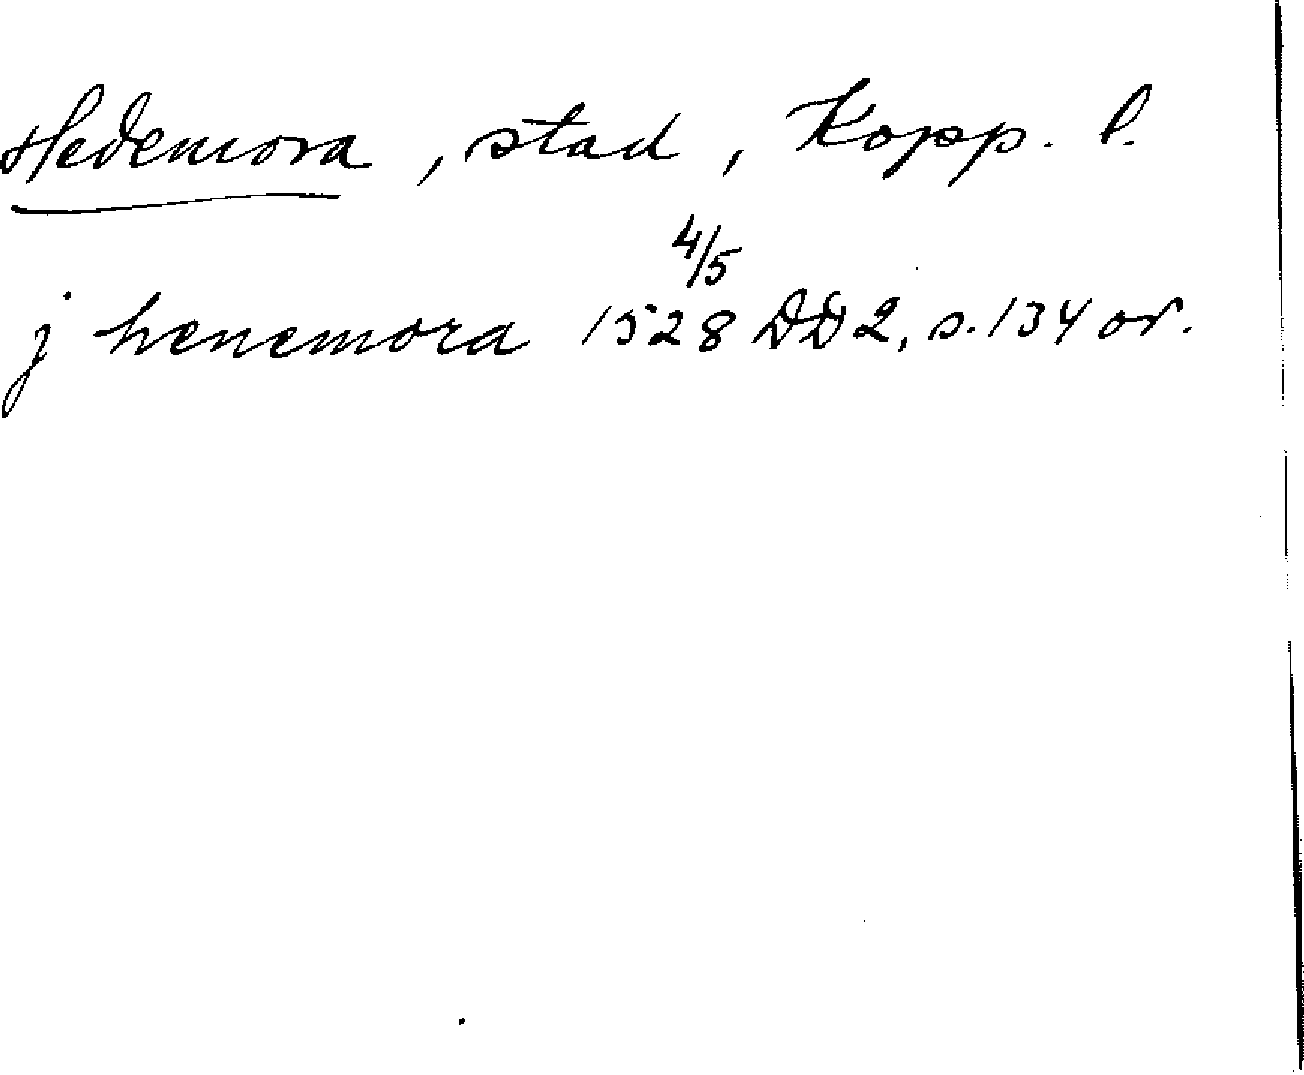 Hedemora, stad, Kopp. l.
j henemora 1528 4/5 DD2, s. 134 or.